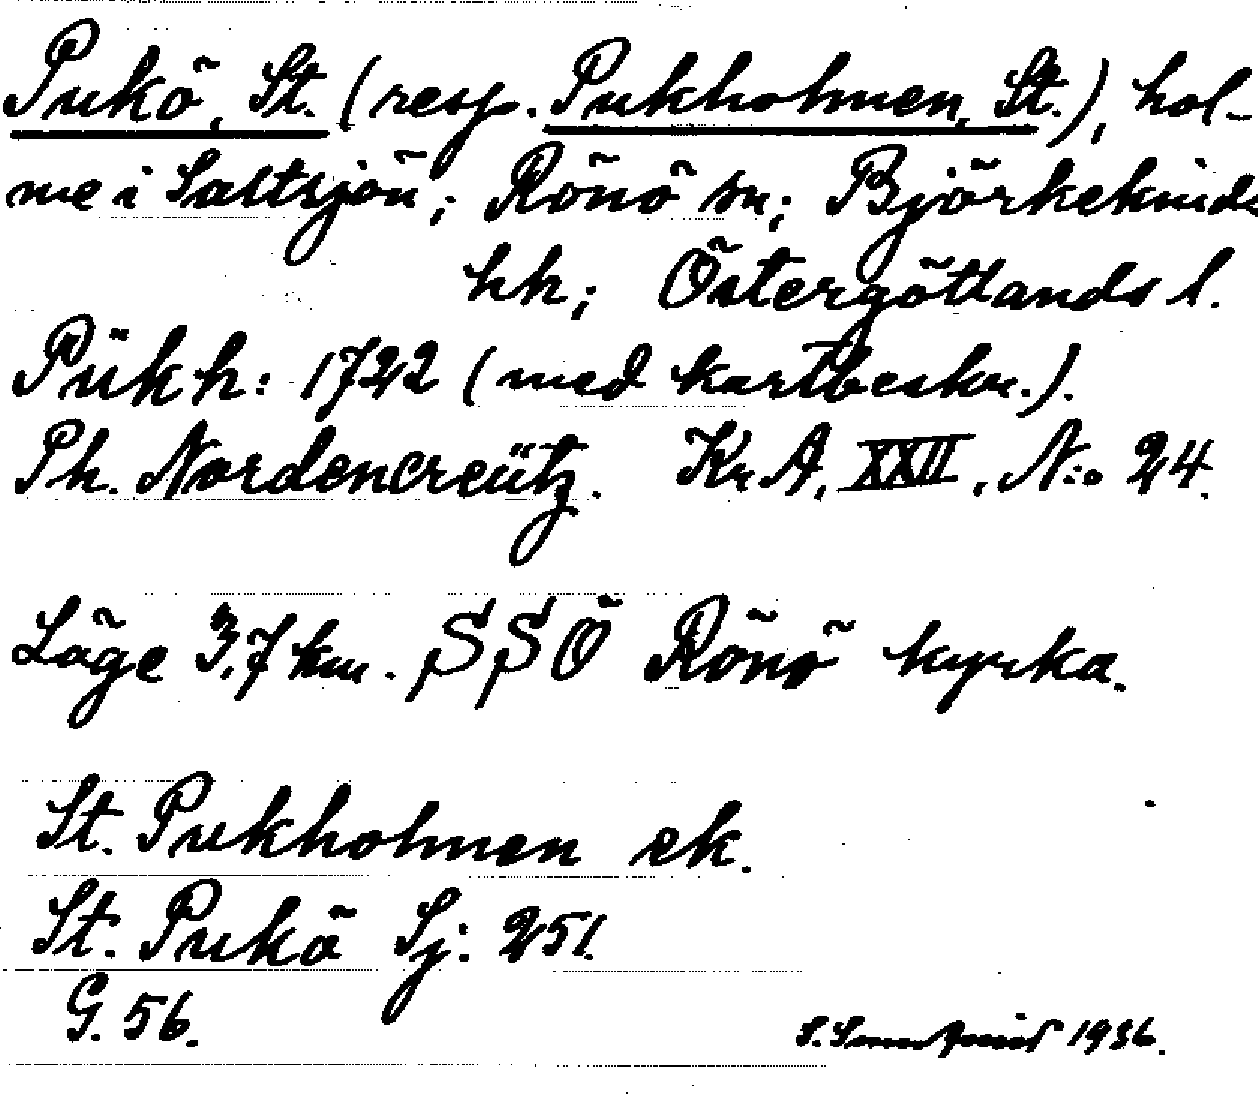 Pukö, St. (resp. Pukholmen, St.), hol-
me i Saltsjön; Rönö sn; Björkekinds
hh; Östergötlands l.
Pükh: 1722 (med kartbeskr.).
Ph. Nordencreütz. Kr. A. XXII, N:o 24.
Läge 3,7 km. SSÖ Rönö kyrka.
St. Pukholmen ek.
St. Pukö Sj: 251.
G. 56.
S. 1936.